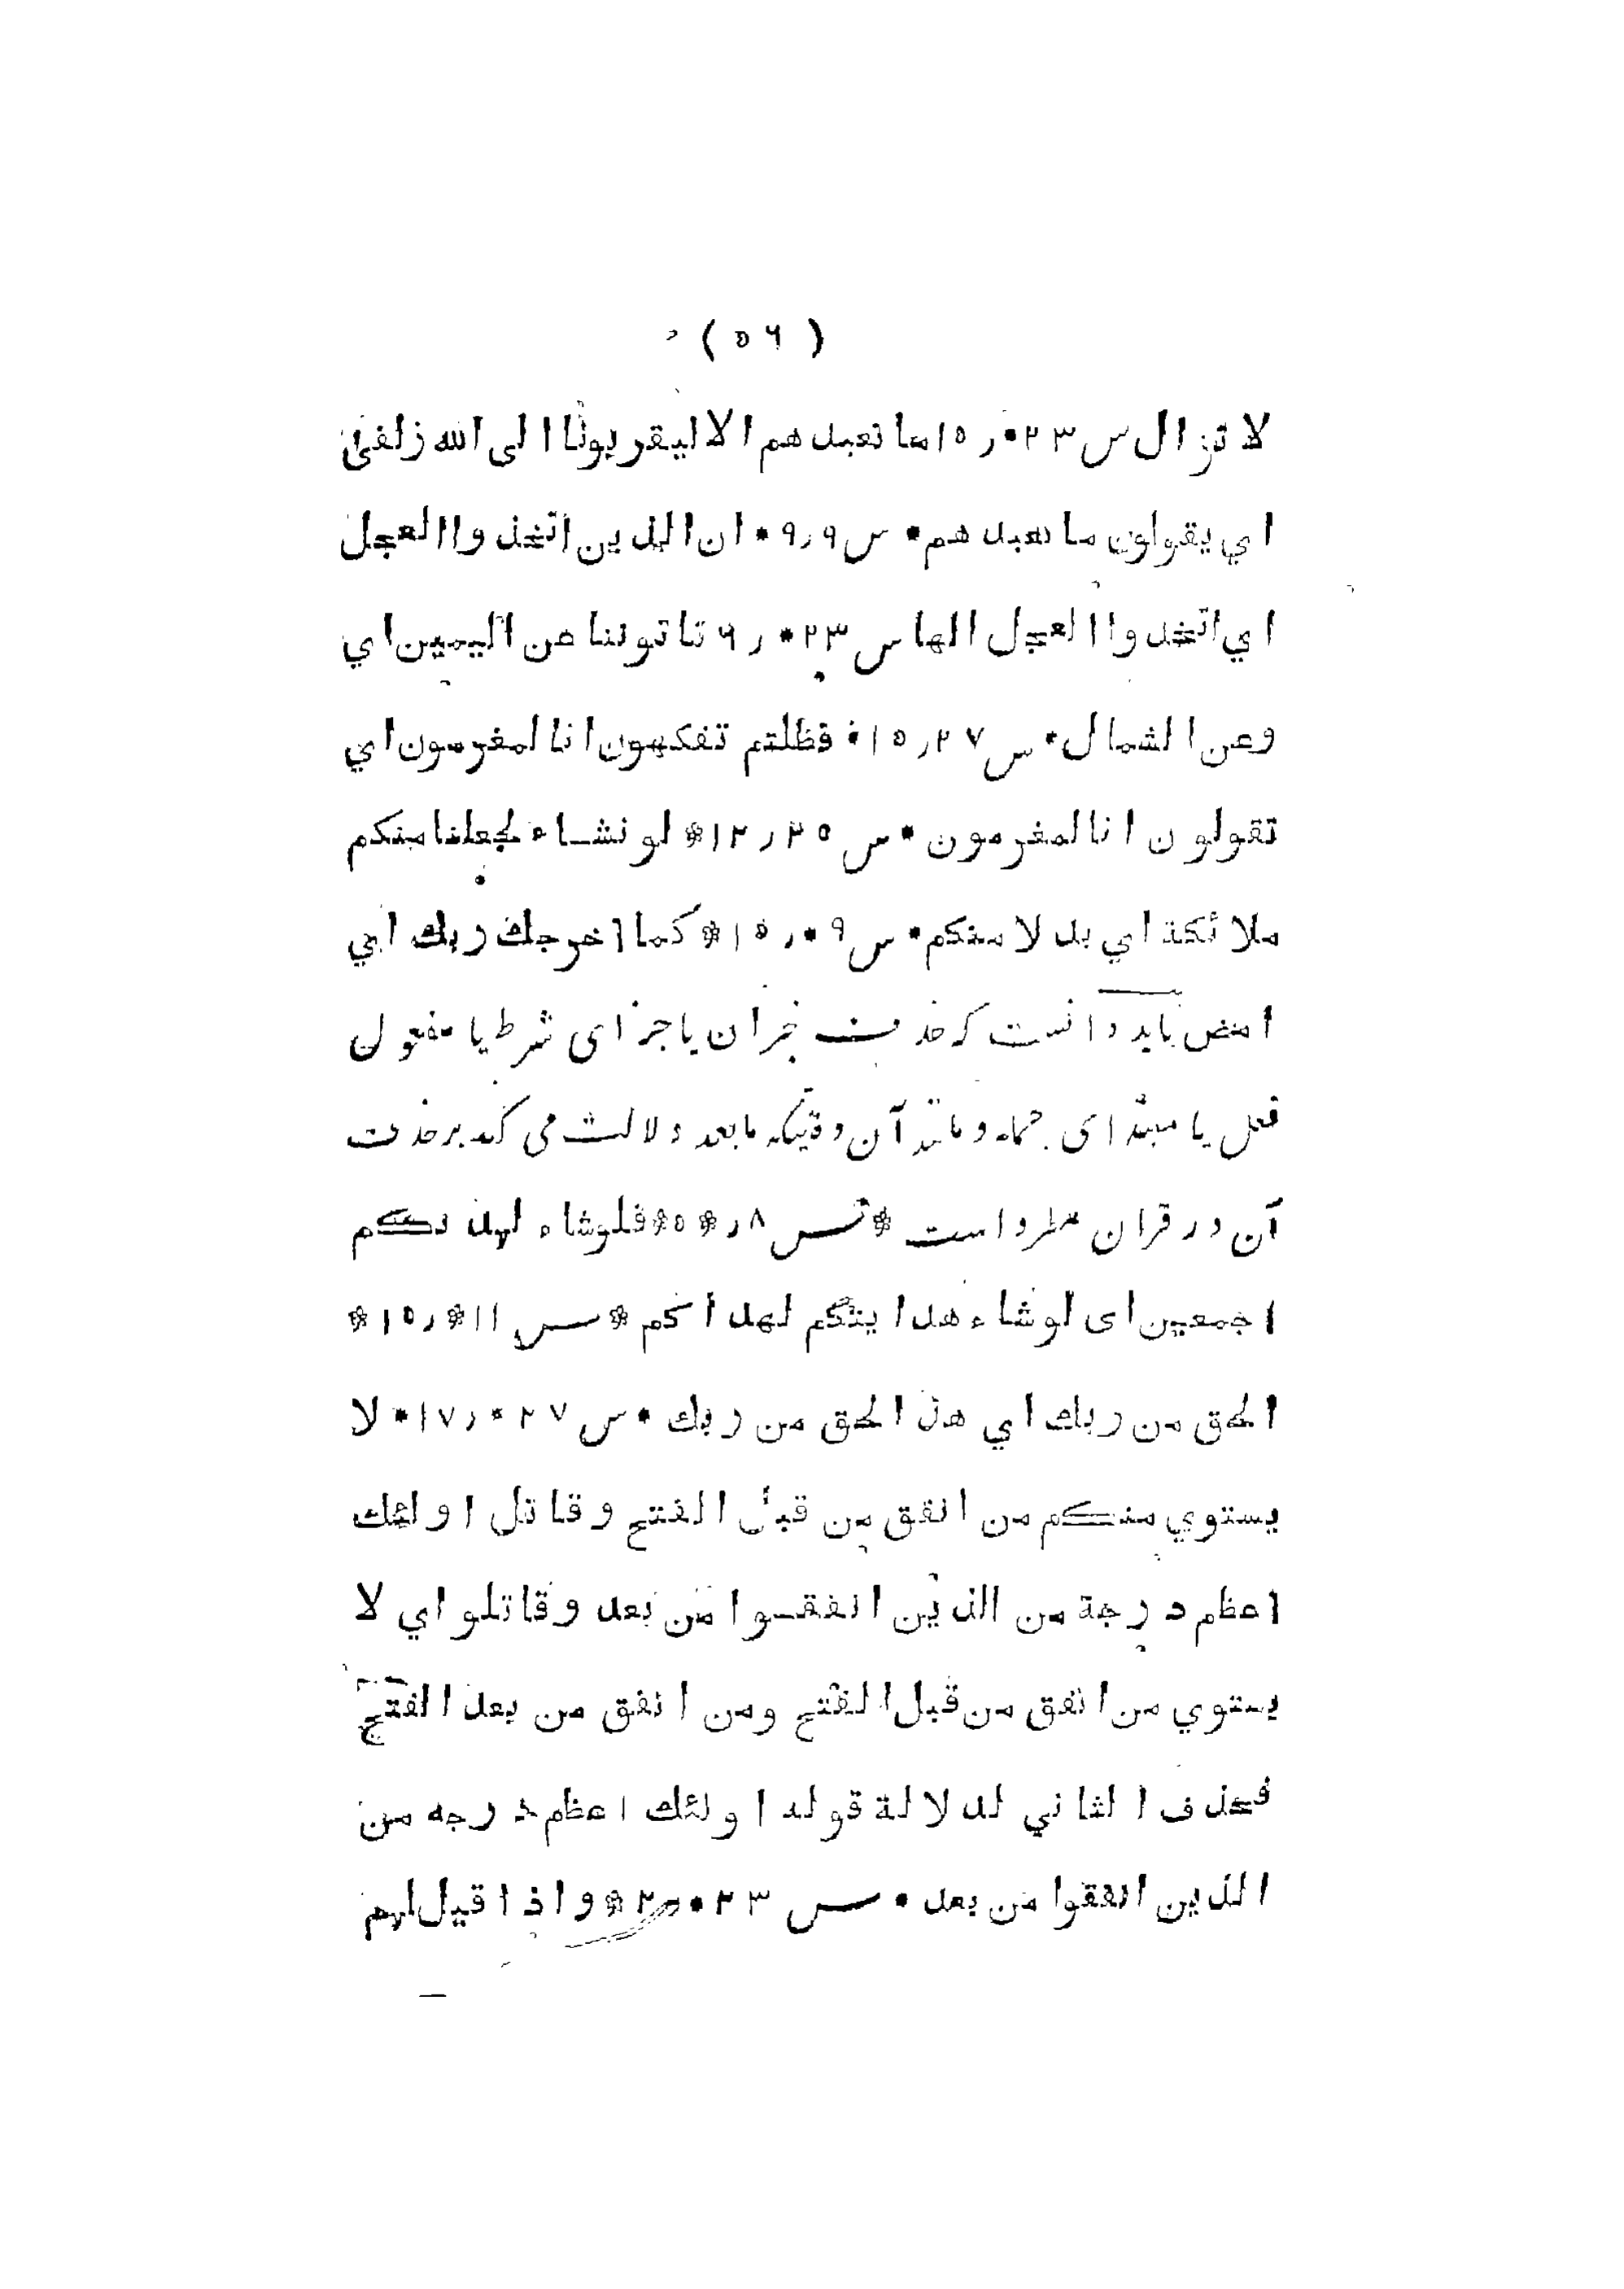 ( ٥٦ )
لا تزال س ٢٣ * ر ١٥ ما نعبد هم الا ليقربونا الى الله زلفى
اي يقولون ما نعبد هم * س ٩ر٩ * ان الذين اتخذوا العجل
اي اتخذوا العجل الها س ٢٣ * ر ٦ تاتوننا عن اليمين اي
وعن الشمال * س ٢٧ ر ١٥ * فظلتم تفكهون انا لمغرمون اي
تقولون انا لمغرمون * س ٢٥ ر ١٢ * لو نشاء لجعلنا منكم
ملائكة اي بدلا منكم * س ٩ * ر ١٥ * كما اخرجك ربك اي
امض باید دانست که حذف خبر ان یا جزای شرط یا مفعول
فعل یا مبتدای جمله و مانند آن وقتیکه مابعد دلالت می کند بر حذف
آن در قران مطرد است * س ٨ ر * ٥ * فلوشاء لهدىكم
اجمعين اى لوشاء هدايتكم لهداكم * س ١١ * ر ١٥ *
الحق من ربك اي هذا الحق من ربك * س ٢٧ * ر ١٧ * لا
يستوي منكم من انفق من قبل الفتح وقاتل اولئك
اعظم درجة من الذين انفقوا من بعد وقاتلو اي لا
يستوي من انفق من قبل الفتح ومن انفق من بعد الفتح
فحذف الثاني لدلالة قوله اولئك اعظم درجه من
الذين انفقوا من بعد * س ٢٣ * ر ٢ * واذا قيل لهم